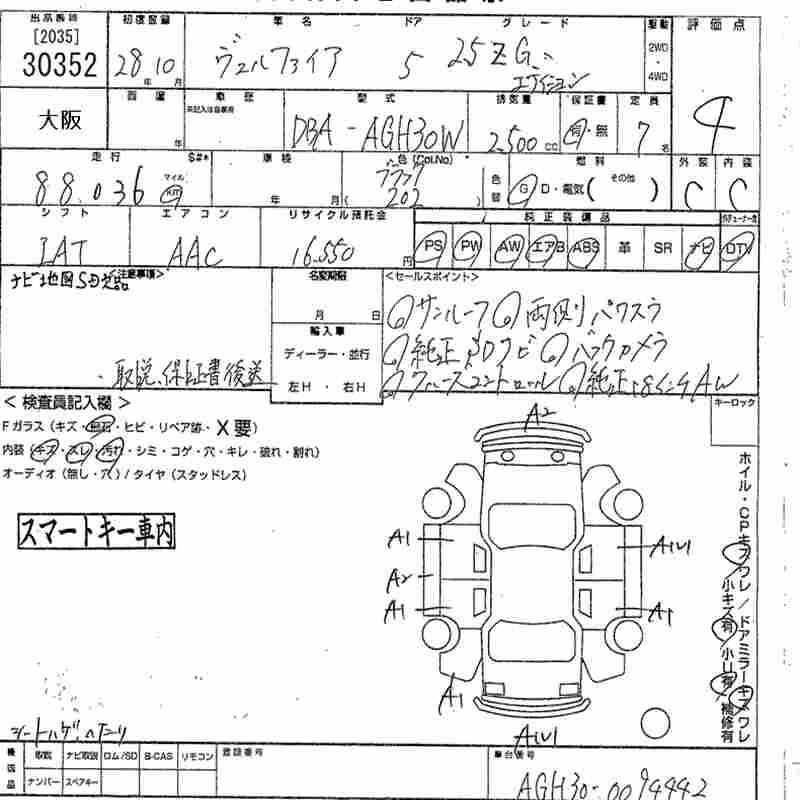 出品番号 初度登録 車名 ドア グレード 駆動 評価点
[2035]
30352 28年10月 ヴェルファイア 5 25Z G、エディション 2WD・4WD 4
大阪 西暦 年 車歴 未記入は自家用 型式 排気量 保証書 定員
DBA-AGH30W 2,500cc 有・無 7名
走行 車検 色(Col.No) 燃料 外装 内装
88,036 マイル km 年 月( ブラック 202 ) 色替 G D・電気( その他 ) C C
シフト エアコン リサイクル預託金 純正装備品
IAT AAC 16,550円 PS PW AW エアB ABS 革 SR ナビ DTV
<注意事項> 名変期限 <セールスポイント>
月 日 サンルーフ 両側パワスラ
輸入車 純正SDナビ バックカメラ
ディーラー・並行 クルーズコントロール 純正18インチAW
取説、保証書後送 左H・右H
<検査員記入欄> キーロック
Fガラス(キズ・飛石・ヒビ・リペア跡・X要)
内装(キズ・スレ・汚れ・シミ・コゲ・穴・キレ・破れ・割れ)
オーディオ(無し・穴)/タイヤ(スタッドレス)
スマートキー車内
A2
A1 AIU
A2
A1 A1
A1
AIU
ホイル・CPキズワレ/ドアミラーキズワレ
小キズ有/小U有/補修有
シートハゲ、ヘタリ
後送品 取説 ナビ取説 ロム/SD B-CAS リモコン 登録番号 車台番号
ナンバー スペアキー AGH30-0094442